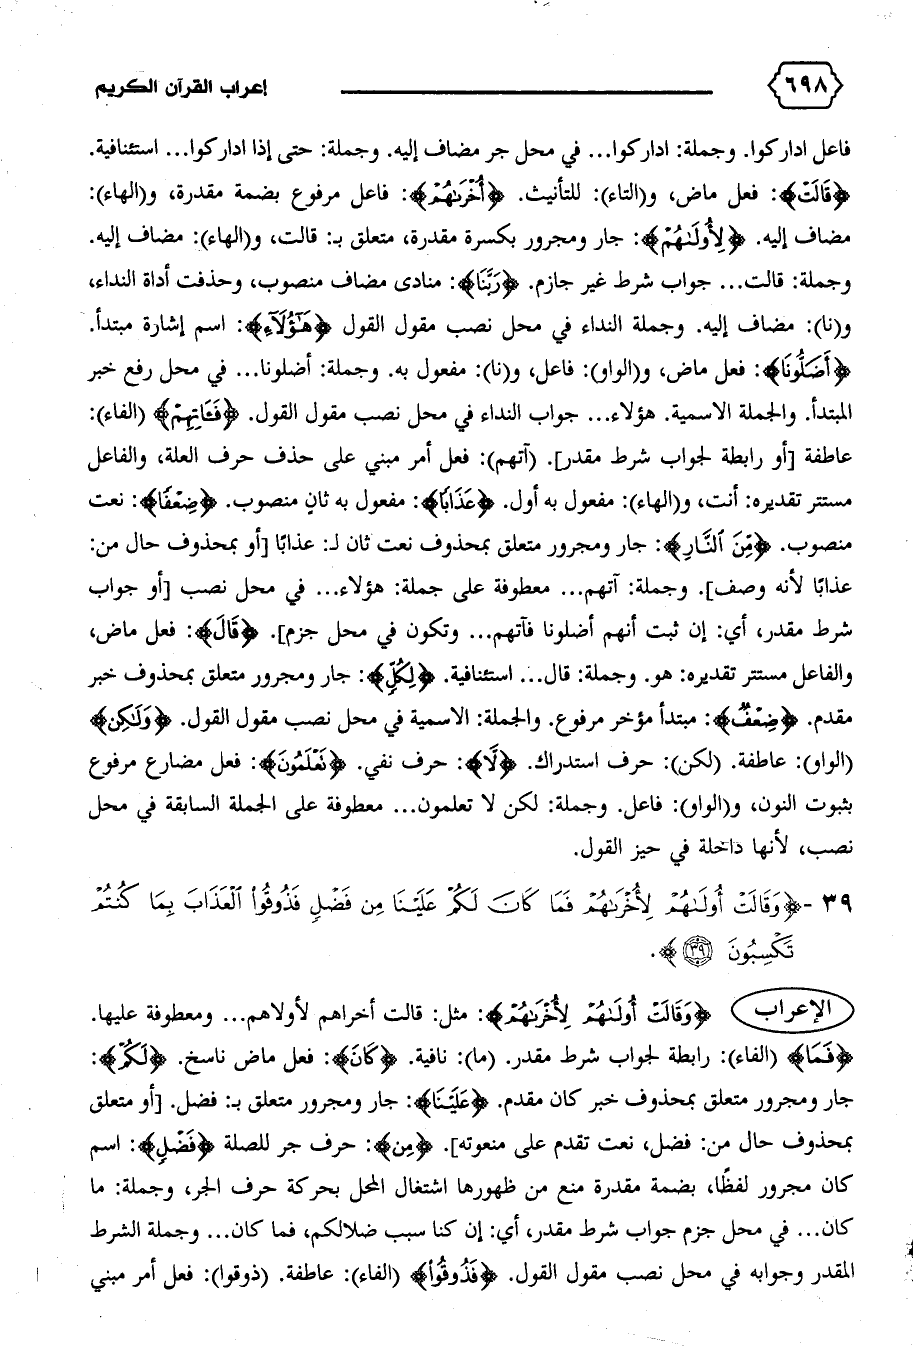 ٦٩٨
إعراب القرآن الكريم
فاعل اداركوا. وجملة: اداركوا... في محل جر مضاف إليه. وجملة: حتى إذا اداركوا... استئنافية.
﴿قَالَتْ﴾: فعل ماض، و(التاء): للتأنيث. ﴿أُخْرَىٰهُمْ﴾: فاعل مرفوع بضمة مقدرة، و(الهاء):
مضاف إليه. ﴿لِأُولَىٰهُمْ﴾: جار ومجرور بكسرة مقدرة، متعلق بـ: قالت، و(الهاء): مضاف إليه.
وجملة: قالت... جواب شرط غير جازم. ﴿رَبَّنَا﴾: منادى مضاف منصوب، وحذفت أداة النداء،
و(نا): مضاف إليه. وجملة النداء في محل نصب مقول القول ﴿هَٰٓؤُلَآءِ﴾: اسم إشارة مبتدأ.
﴿أَضَلُّونَا﴾: فعل ماض، و(الواو): فاعل، و(نا): مفعول به. وجملة: أضلونا... في محل رفع خبر
المبتدأ. والجملة الاسمية. هؤلاء... جواب النداء في محل نصب مقول القول. ﴿فَـَٔاتِهِمْ﴾ (الفاء):
عاطفة [أو رابطة لجواب شرط مقدر]. (آتهم): فعل أمر مبني على حذف حرف العلة، والفاعل
مستتر تقديره: أنت، و(الهاء): مفعول به أول. ﴿عَذَابًا﴾: مفعول به ثانٍ منصوب. ﴿ضِعْفًا﴾: نعت
منصوب. ﴿مِّنَ ٱلنَّارِ﴾: جار ومجرور متعلق بمحذوف نعت ثان لـ: عذابًا [أو بمحذوف حال من:
عذابًا لأنه وصف]. وجملة: آتهم... معطوفة على جملة: هؤلاء... في محل نصب [أو جواب
شرط مقدر، أي: إن ثبت أنهم أضلونا فآتهم... وتكون في محل جزم]. ﴿قَالَ﴾: فعل ماض،
والفاعل مستتر تقديره: هو. وجملة: قال... استئنافية. ﴿لِكُلٍّ﴾: جار ومجرور متعلق بمحذوف خبر
مقدم. ﴿ضِعْفٌ﴾: مبتدأ مؤخر مرفوع. والجملة: الاسمية في محل نصب مقول القول. ﴿وَلَٰكِن﴾
(الواو): عاطفة. (لكن): حرف استدراك. ﴿لَّا﴾: حرف نفي. ﴿نَعْلَمُونَ﴾: فعل مضارع مرفوع
بثبوت النون، و(الواو): فاعل. وجملة: لكن لا تعلمون... معطوفة على الجملة السابقة في محل
نصب، لأنها داخلة في حيز القول.
٣٩ - ﴿وَقَالَتْ أُولَىٰهُمْ لِأُخْرَىٰهُمْ فَمَا كَانَ لَكُمْ عَلَيْنَا مِن فَضْلٍ فَذُوقُوا۟ ٱلْعَذَابَ بِمَا كُنتُمْ
تَكْسِبُونَ ٣٩﴾.
الإعراب ﴿وَقَالَتْ أُولَىٰهُمْ لِأُخْرَىٰهُمْ﴾: مثل: قالت أخراهم لأولاهم... ومعطوفة عليها.
﴿فَمَا﴾ (الفاء): رابطة لجواب شرط مقدر. (ما): نافية. ﴿كَانَ﴾: فعل ماض ناسخ. ﴿لَكُمْ﴾:
جار ومجرور متعلق بمحذوف خبر كان مقدم. ﴿عَلَيْنَا﴾: جار ومجرور متعلق بـ: فضل. [أو متعلق
بمحذوف حال من: فضل، نعت تقدم على منعوته]. ﴿مِن﴾: حرف جر للصلة ﴿فَضْلٍ﴾: اسم
كان مجرور لفظًا، بضمة مقدرة منع من ظهورها اشتغال المحل بحركة حرف الجر، وجملة: ما
كان... في محل جزم جواب شرط مقدر، أي: إن كنا سبب ضلالكم، فما كان... وجملة الشرط
المقدر وجوابه في محل نصب مقول القول. ﴿فَذُوقُوا۟﴾ (الفاء): عاطفة. (ذوقوا): فعل أمر مبني